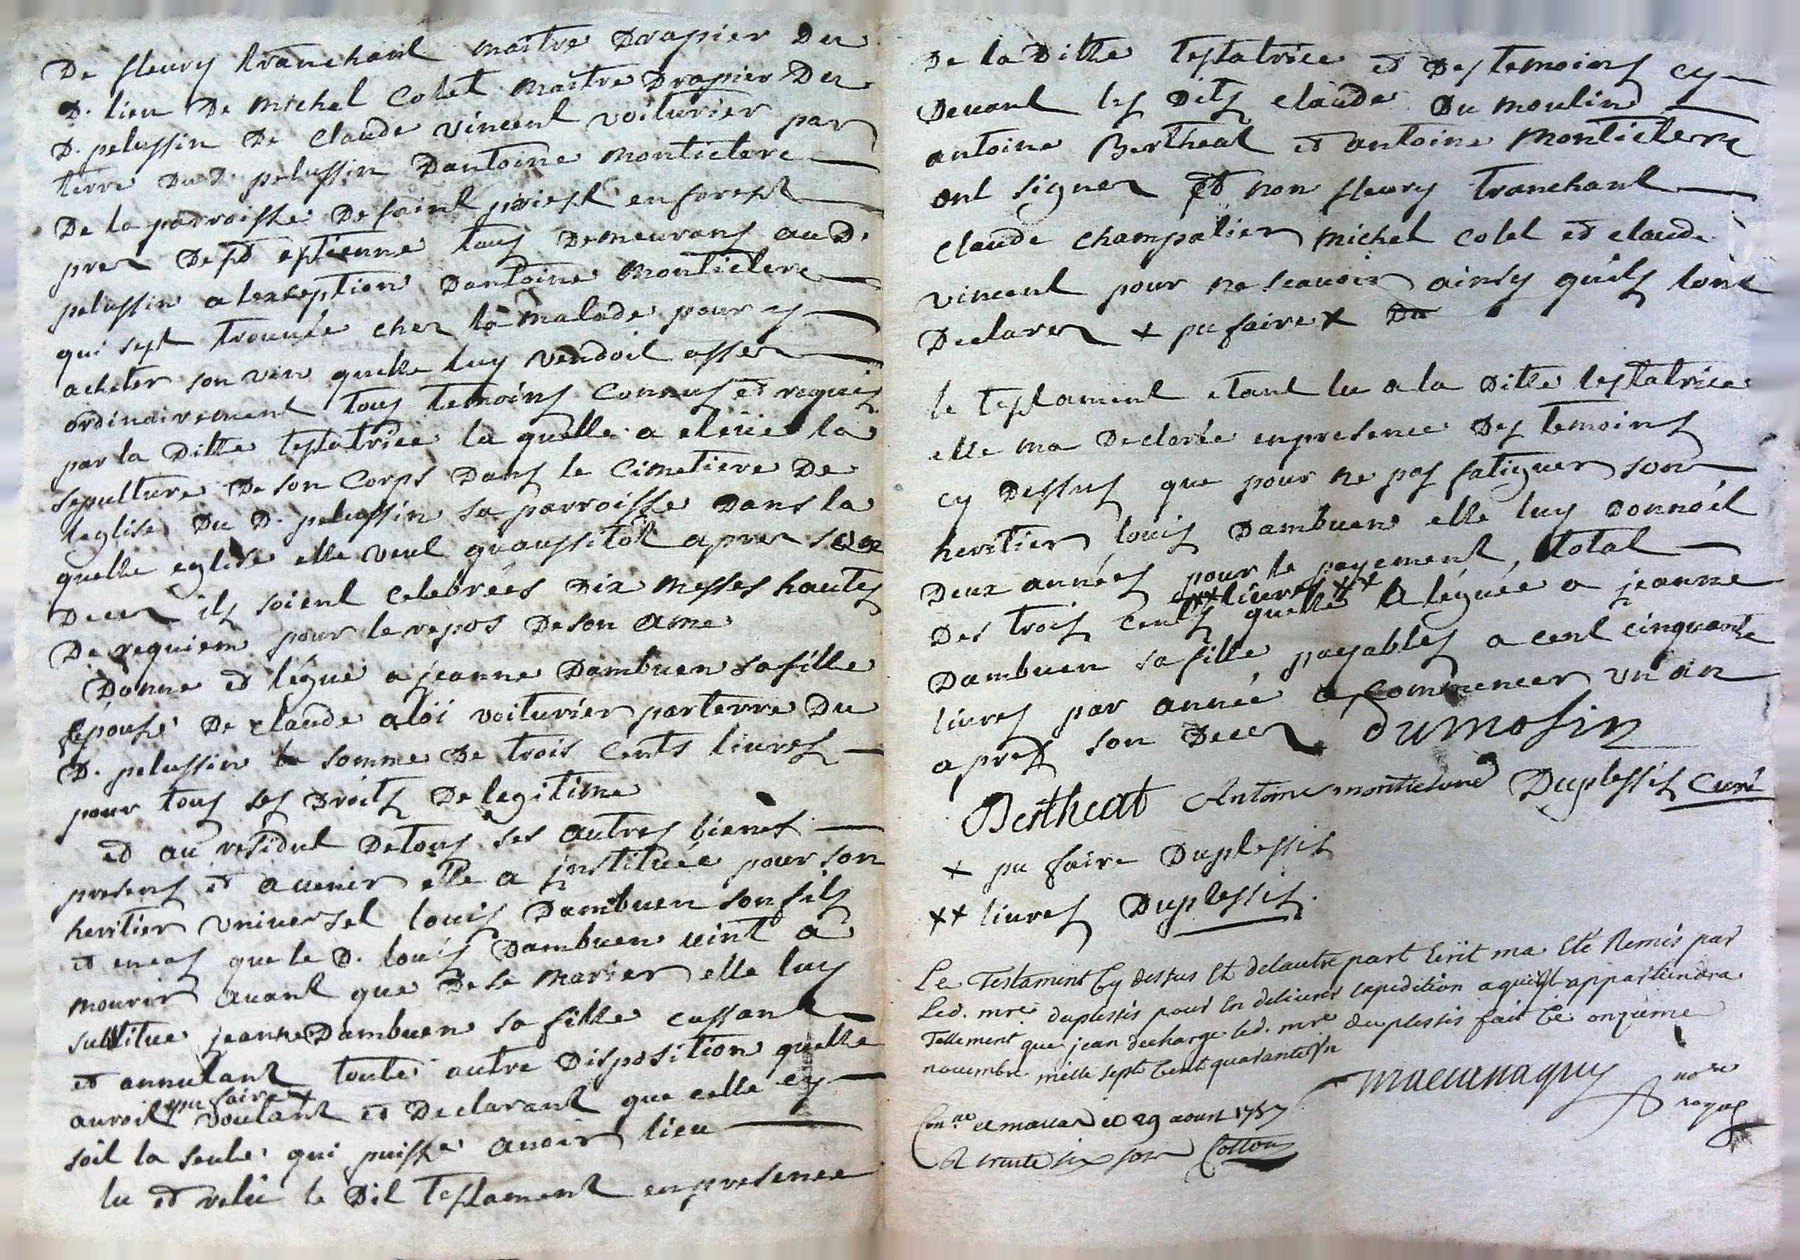 De fleury tranchant maitre Drapier Du
D. lieu De michel Colet maitre Drapier Du
D. pelussin De claude vincent voiturier par
terre du D. pelussin Dantoine monticlere
De la parroisse De saint priest en forest
prez De st estienne tous Demeurans au D.
pelussin a lexception Dantoine monticlere
qui sest trouvée chez la malade pour y
acheter son vin quelle luy vendoit assez
ordinairement tous temoins connus et requis
par la Ditte testatrice la quelle a eleüe la
sepulture De son Corps Dans le Cimetiere De
leglise Du D. pelussin sa parroisse Dans la
quelle eglise elle veut quaussitôt apres son
Decez ils soient celebrées Dix Messes hautes
De requiem pour le repos De son ame
Donne et légue a jeanne Dambuen sa fille
Epouse De claude aloi voiturier par terre Du
D. pelussin la somme De trois Cents livres
pour tous ses Droits De legitime
et au residut De tous ses autres biens
presens et avenir elle a jnstituée pour son
heritier universel louis Dambuen son fils
et en cas que le D. louis Dambuen vint a
mourir avant que De se marier elle luy
subtitue jeanne Dambuen sa fille cassant
et annulant toute autre Disposition quelle
auroit pu faire x voulant et Declarant que celle cy
soit la seule qui puisse avoir lieu
lu et relu le Dit testament en presence
De la Ditte testatrice et Des temoins cy
Devant les Dits claude Du moulin
antoine Bertheat et antoine Monticlerre
ont signez et non fleury tranchant
claude champalier michel colet et claude
vincent pour ne scavoir ainsy quils lont
Declarez x pu faire x Du
le testament etant lu a la Ditte testatrice
elle ma Declarée en presence Des temoins
cy Dessus que pour ne pas fatiguer son
heritier louis Dambuen elle luy Donnoit
Deux années pour le payement, total
xx livres xx
Des trois Cents quelle a léguée a jeanne
Dambuen sa fille payables a cent cinquante
livres par année a commencer un an
apres son Decez dumolin
Bertheat Antoine monticlere Duplessis Curé
x pu faire Duplessis
xx livres Duplessis.
Le Testament Cy dessus Et delautre part Ecrit ma Eté Remis par
Led. mre. duplessis pour En delivrer Expedition a qui Il appartiendra
Tellement que jean decharge led. mre duplessis fait Ce onzieme
novembre mille sept Cent quarante
no.re
royal
Con.lle a le 29 aoust 1757
R trente six sols Cotton